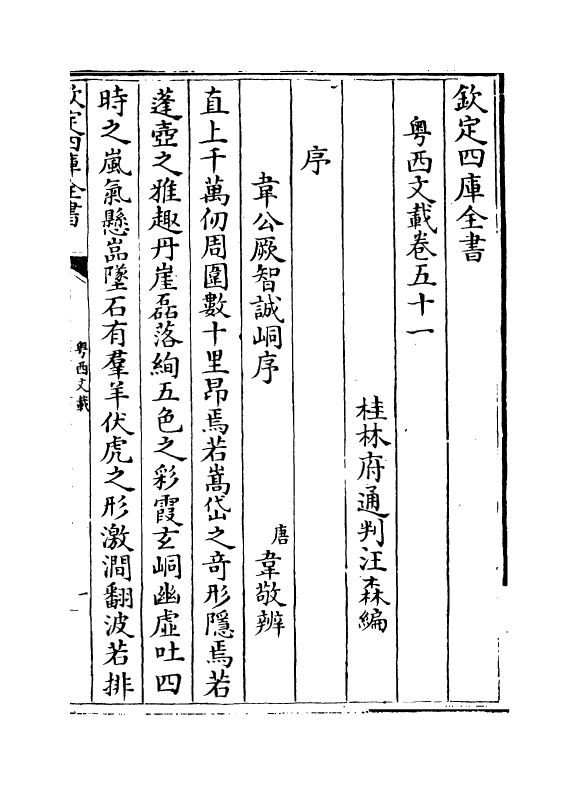 欽定四庫全書
粤西文載卷五十一
桂林府通判汪森編
序
韋公厥智誠峒序
唐韋敬辨
直上千萬仞周圍數十里昂焉若嵩岱之奇形隱焉若
蓬壺之雅趣丹崖磊落絢五色之彩霞玄峒幽虛吐四
時之嵐氣懸嵓墜石有羣羊伏虎之形激澗翻波若排
欽定四庫全書
粤西文載
一